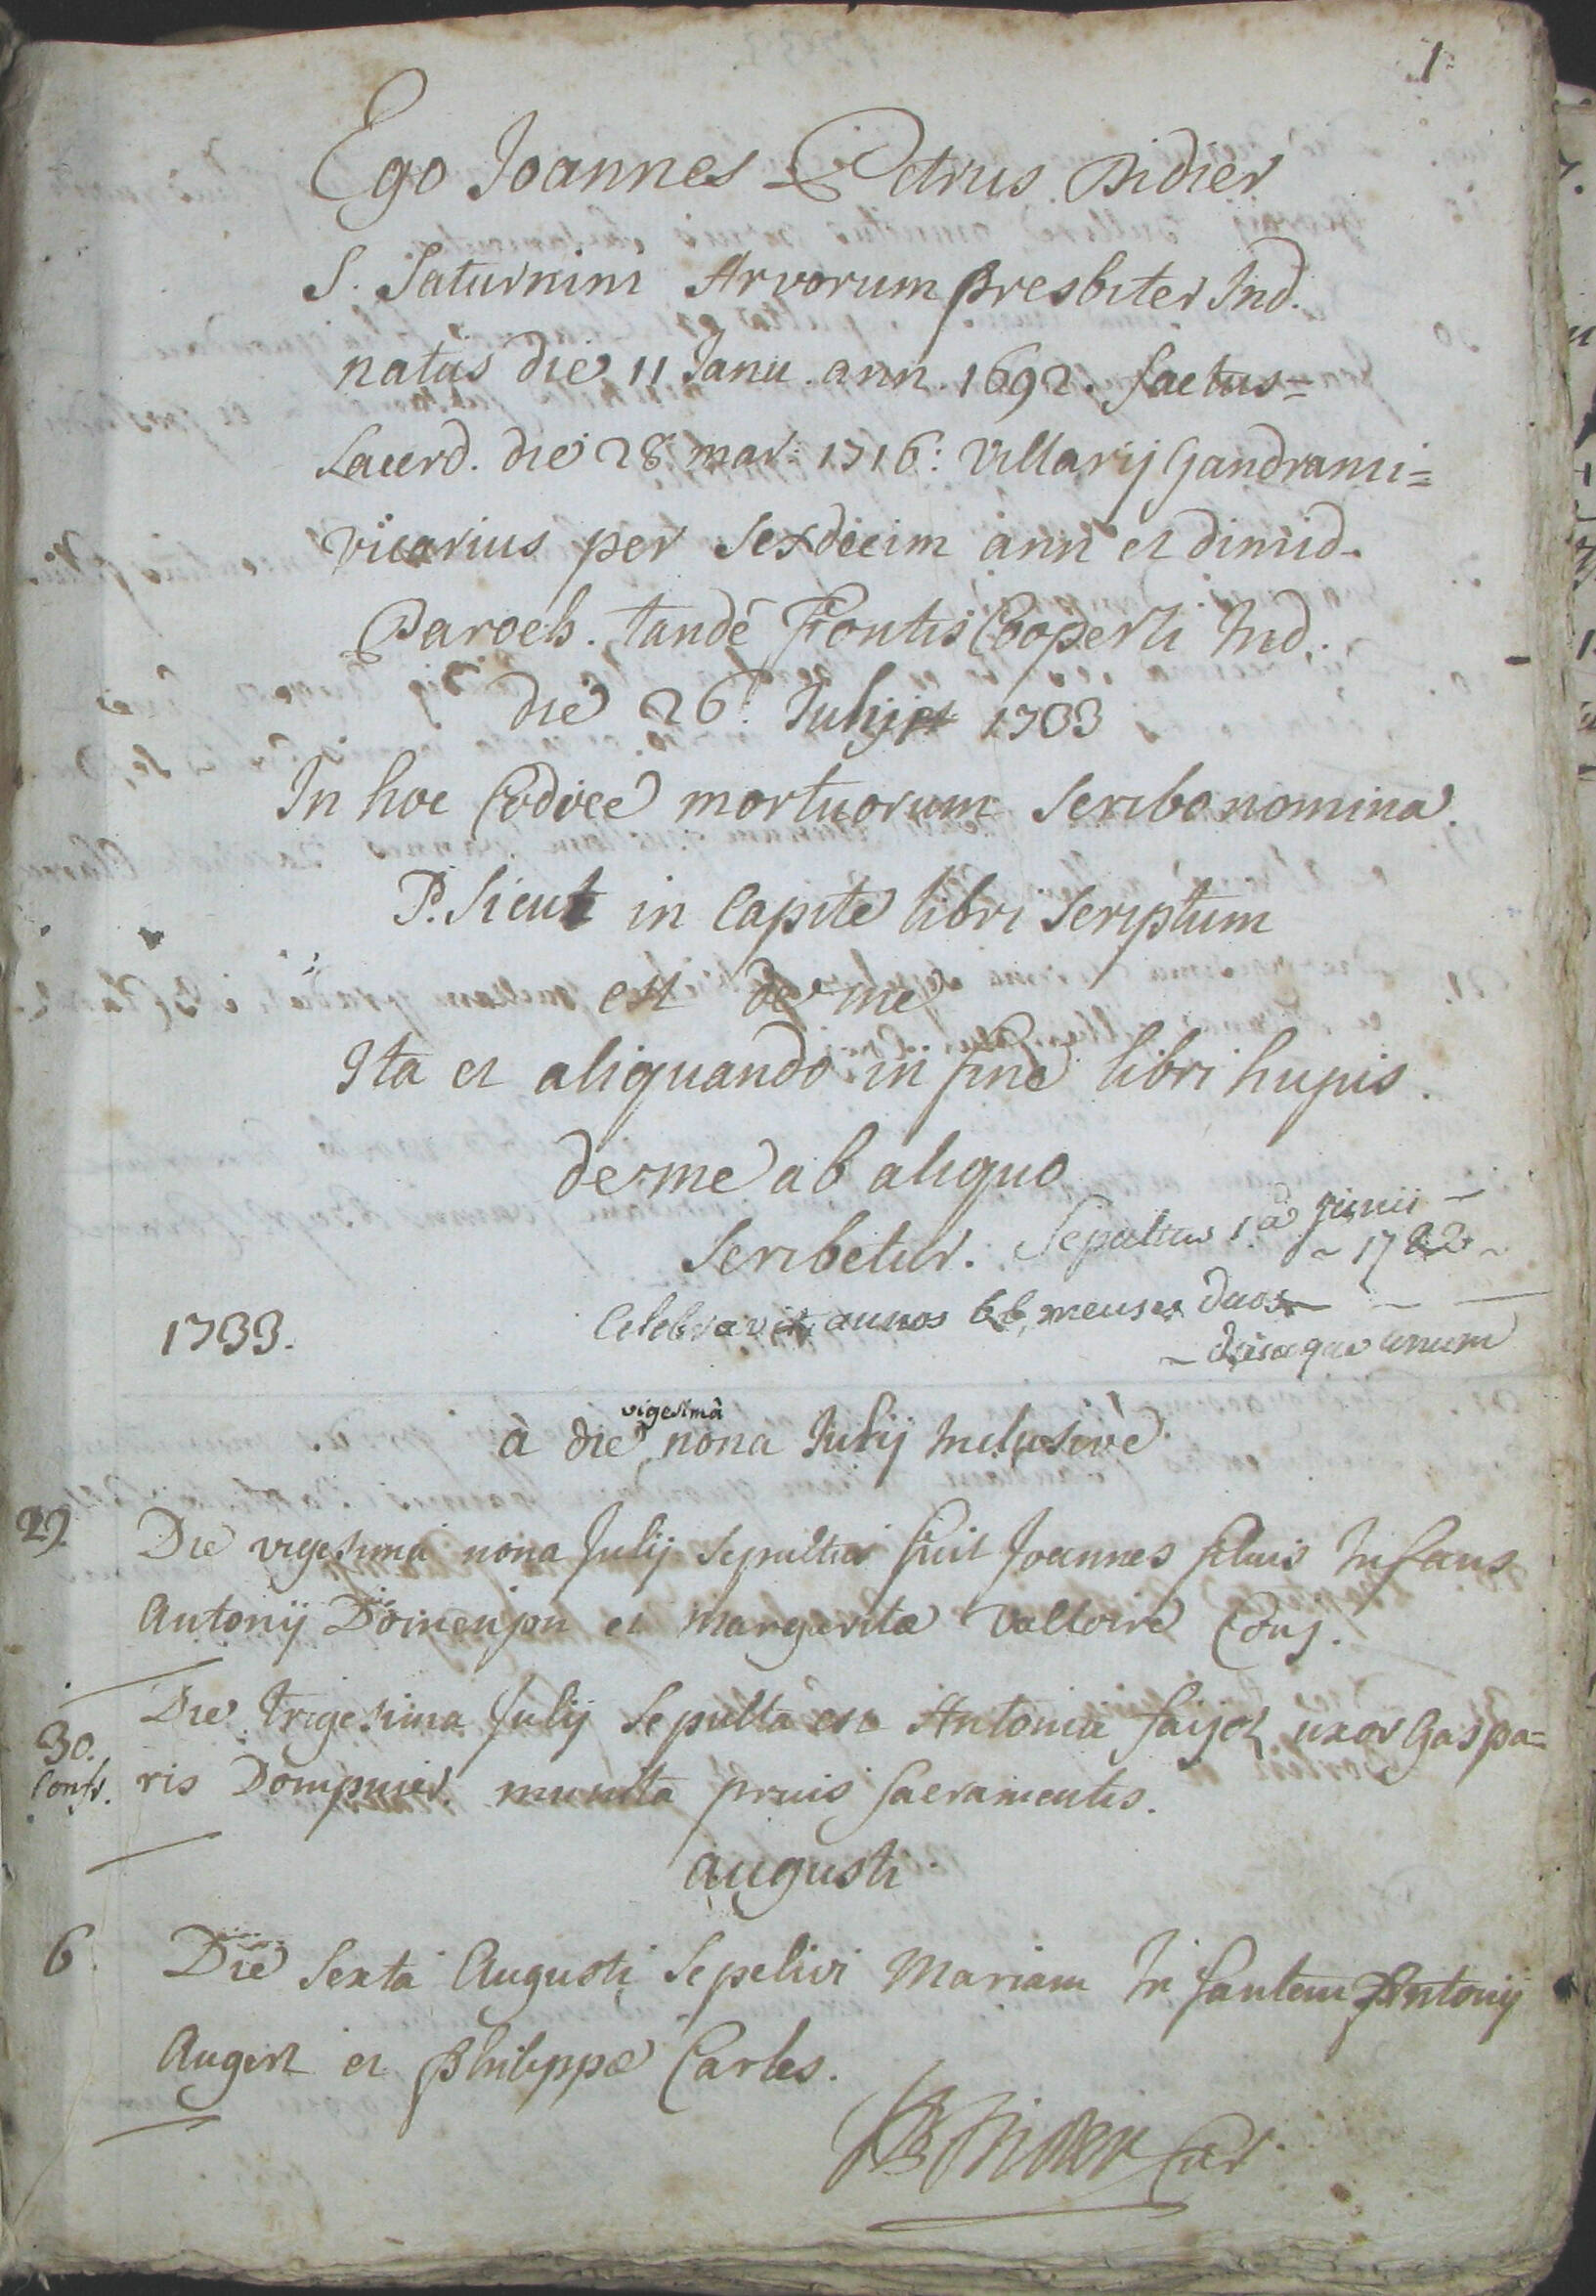 1
Ego Joannes Petrus Didier
S. Saturnini Arvorum presbiter Ind.
natus die 11 Janu. ann. 1692. factus=
Sacerd. die 28 mar: 1716: Villarij Gandrami=
vicarius per sexdecim ann et dimid.
Paroch. tandē Fontis Cooperti Ind.
die 26. Julij 1733
In hoc Codice mortuorum scribo nomina.
P. Sicut in capite libri scriptum
est de me
Ita et aliquando in fine libri hujus
de me ab aliquo
scribetur. Sepultus 1a Junii
~ 1782 ~
Celebravit annos 66, menses duos
~ diesque unum
1733.
vigesimâ
à die nona Julij Inclusivè.
29. Die vigesima nona Julij sepultus fuit Joannes filius Infans
Antonij Domenjon et margarita Valloire Conj.
30. Die trigesima Julij Sepulta est Antonia faijet uxor Gaspa=
Confr. ris Dompnier. munita prius sacramentis.
augusti
6 Die sexta Augusti Sepelivi Mariam Infantem Antonij
Augert et Philippæ Carles.
Didier Cur